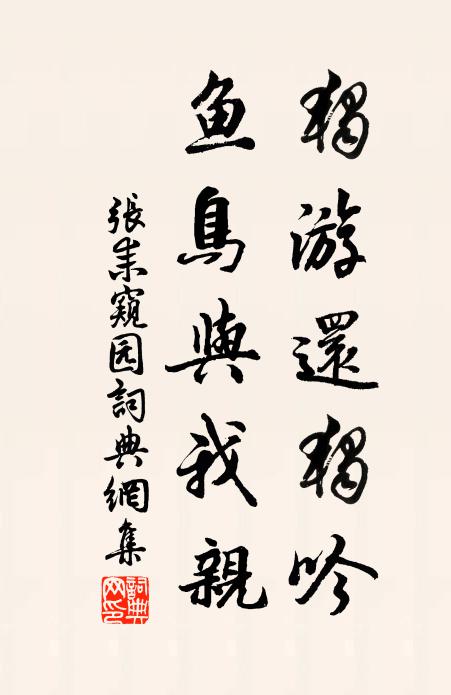 獨游還獨吟
鱼鳥與我親
張耒窺园詞典網集
詞典网印